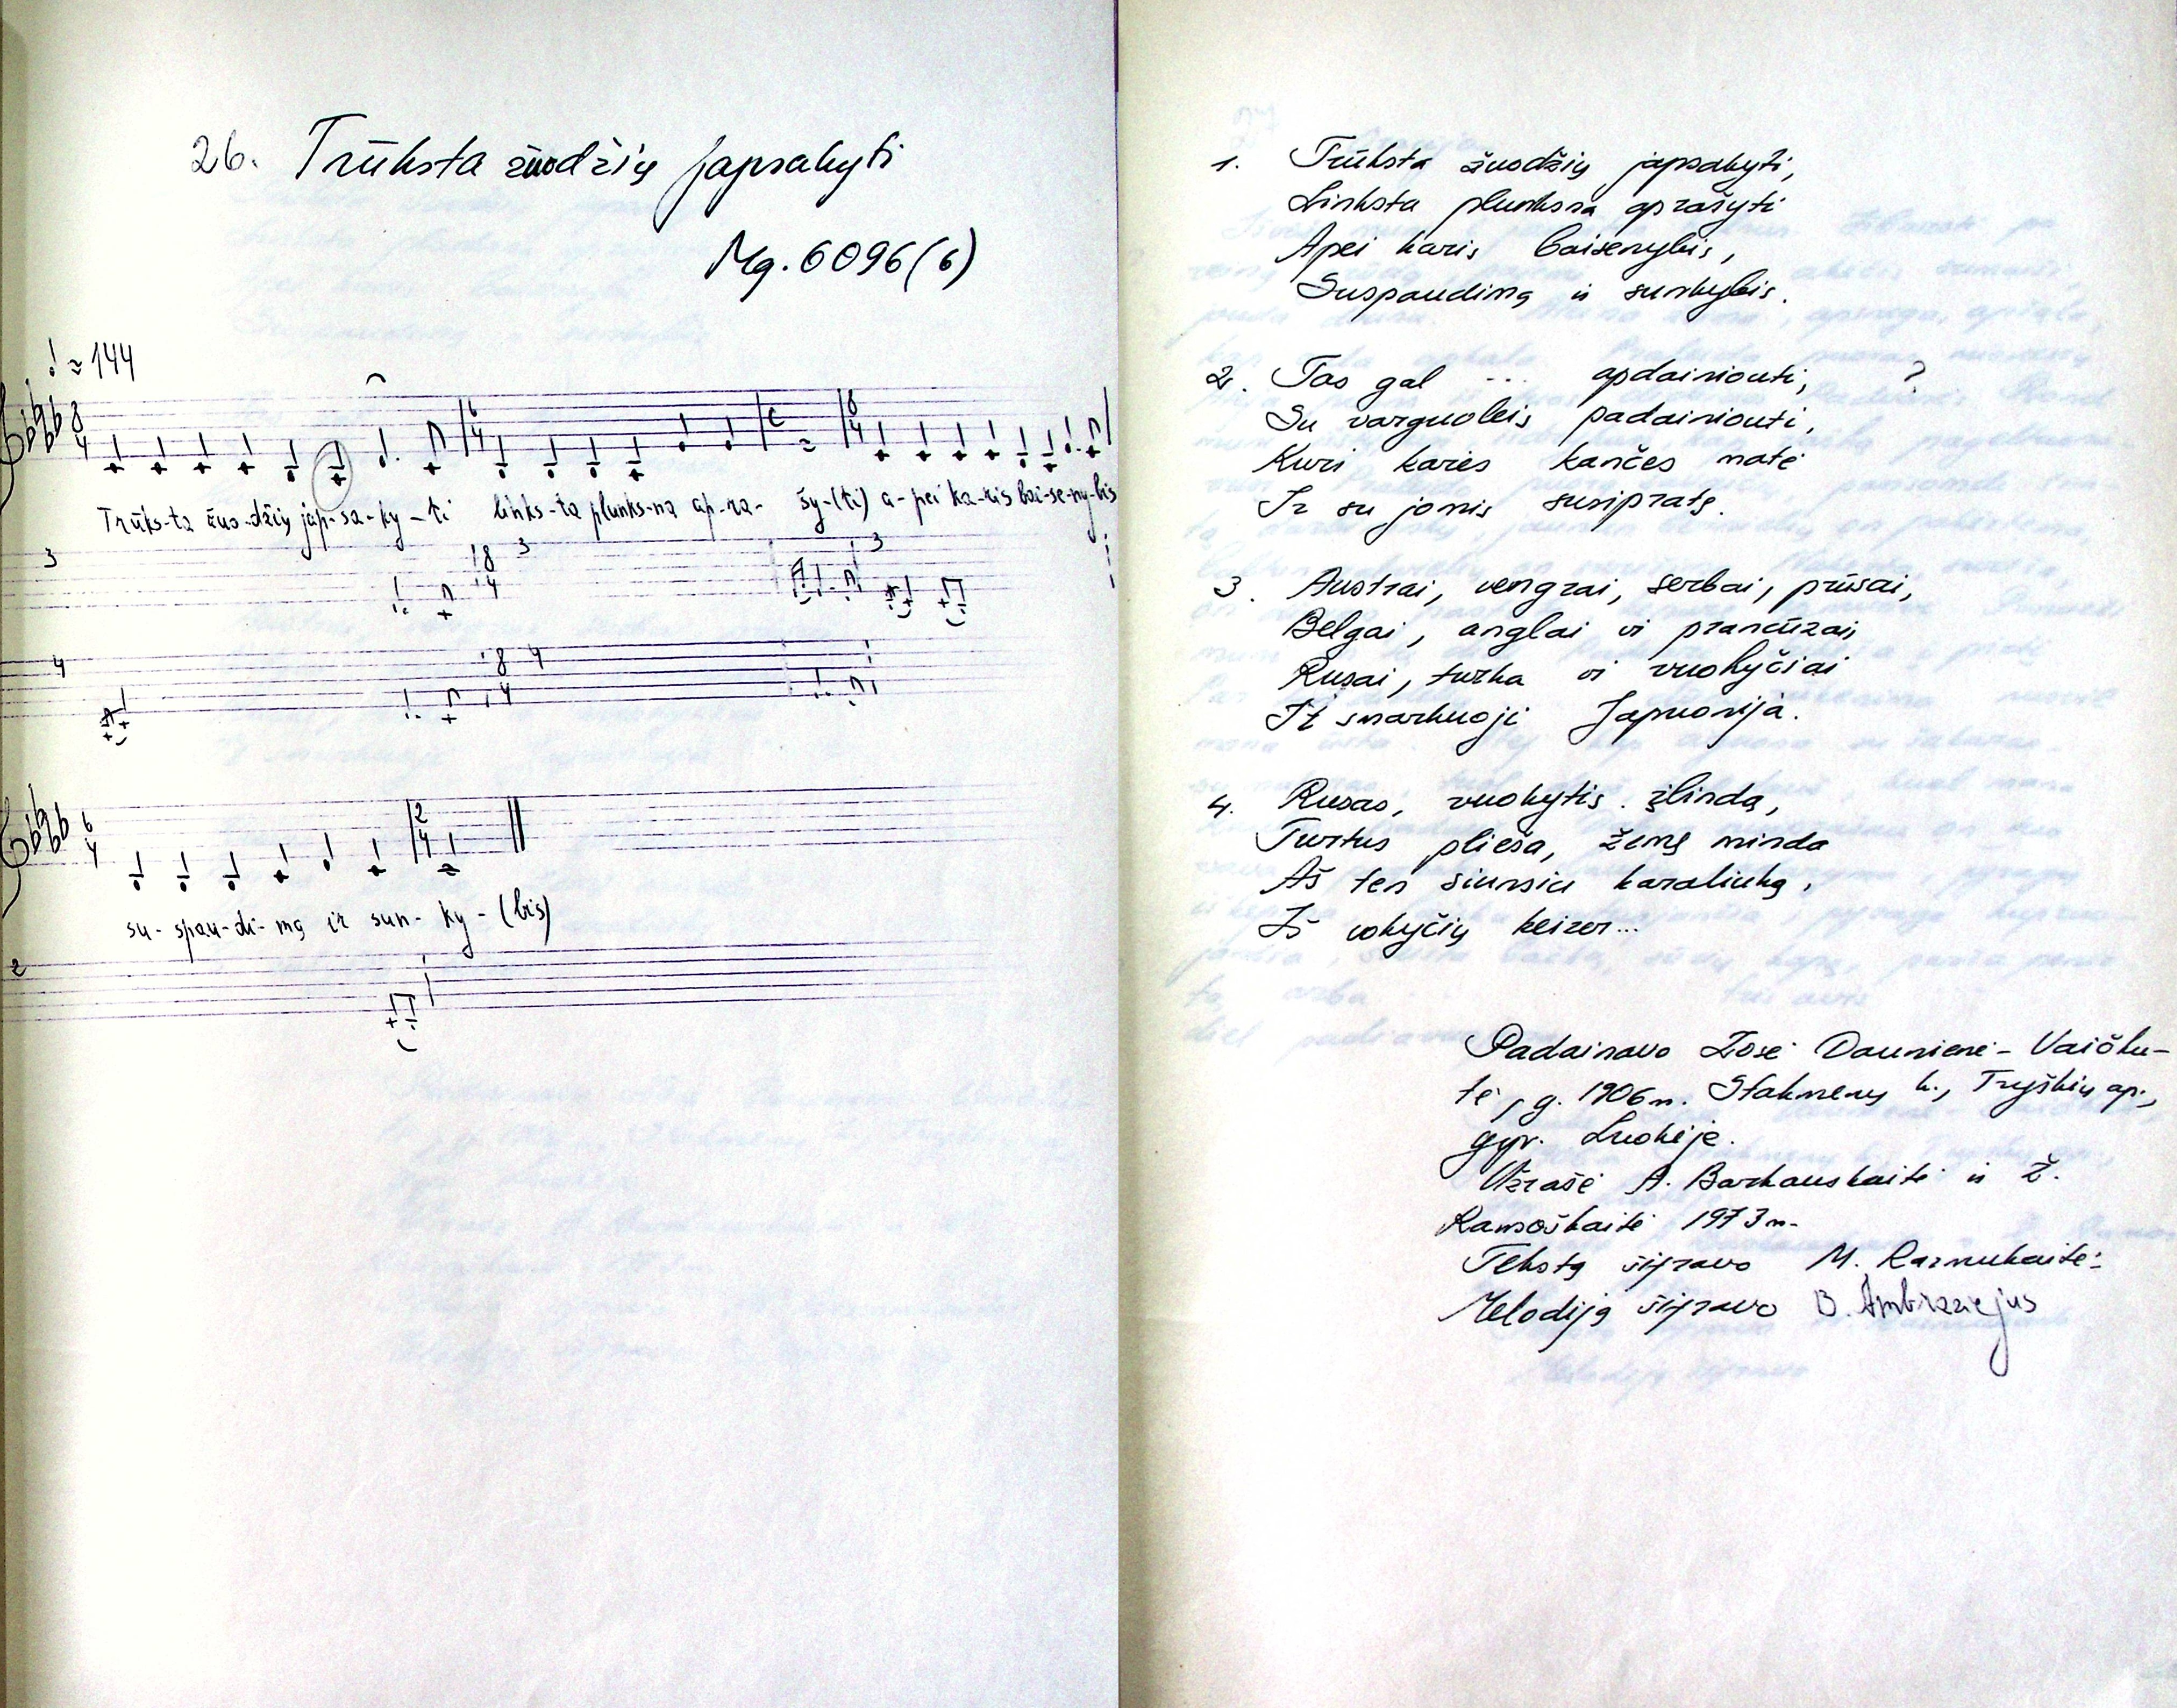 26. Trūksta žuodžių japsakyti
Mg. 6096(6)
≈ 144
Trūks-ta žuo-džių jap-sa-ky-ti links-ta plunks-na ap-ra- šy-(ti) a-pei ka-ris bai-se-ny-bis
3 8 4 3 3
4 8 4 4
su-spau-di-mą ir sun-ky-(bis)
2
1. Trūksta žuodžių japsakyti,
Linksta plunksna aprašyti
Apei karis baisenybis,
Suspaudimą ir sunkybis.
2. Tas gal ... apdainiouti, ?
Su varguoleis padainiouti,
Kuri karės kančes matė
Ir su jomis susipratę.
3. Austrai, vengrai, serbai, prūsai,
Belgai, anglai ir prancūzai,
Rusai, turka ir vuokyčiai
It smarkuoji Japuonija.
4. Rusas, vuokytis įlinda,
Turtus plieša, žemę minda
Aš ten siunsiu karaliuką,
Iš vokyčių keizer...
Padainavo Zosė Daunienė-Vaičku-
tė, g. 1906 m. Stakmenų k., Tryškių ap.,
gyv. Luokėje.
Užrašė A. Barkauskaitė ir Ž.
Ramoškaitė 1973 m.
Tekstą šifravo M. Razmukaitė.
Melodiją šifravo B. Ambraziejus